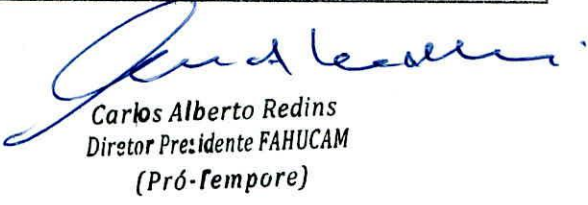 Carlos Alberto Redins
Diretor Presidente FAHUCAM
(Pró-Tempore)